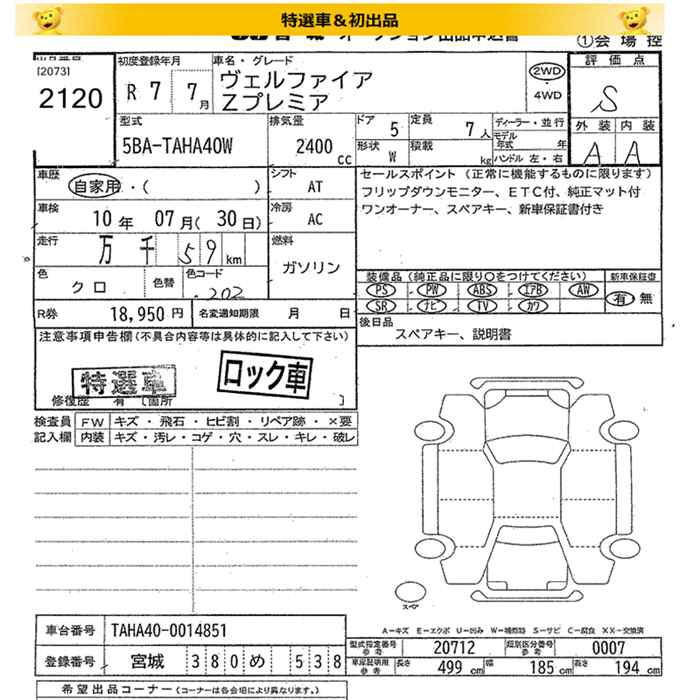 特選車＆初出品
①会場控
[2073]
2120
初度登録年月
R 7 7月
車名・グレード
ヴェルファイア
Zプレミア
2WD
4WD
評価点
S
型式
5BA-TAHA40W
排気量
2400 cc
ドア 5
定員 7人
形状 W
積載 kg
ディーラー・並行
モデル年式 年
ハンドル 左・右
外装 内装
A A
車歴
自家用・( )
シフト
AT
セールスポイント (正常に機能するものに限ります)
フリップダウンモニター、ETC付、純正マット付
ワンオーナー、スペアキー、新車保証書付き
車検
10年 07月(30日)
冷房
AC
走行
万千 59 km
燃料
ガソリン
色
クロ
色替
色コード
202
装備品 (純正品に限り○をつけてください)
PS PW ABS エアB AW
SR ナビ TV カワ
新車保証書
有 無
R券 18,950円
名変通知期限 月 日
後日品
スペアキー、説明書
注意事項申告欄(不具合内容等は具体的に記入して下さい)
特選車
ロック車
修復歴 有 [箇所 ]
検査員記入欄
FW キズ・飛石・ヒビ割・リペア跡・×要
内装 キズ・汚レ・コゲ・穴・スレ・キレ・破レ
スペア
A－キズ E－エクボ U－凹み W－補修跡 S－サビ C－腐食 XX－交換済
車台番号 TAHA40-0014851
登録番号 宮城 380め 538
型式指定番号参考 20712
類別区分番号参考 0007
車庫証明用参考 長さ 499 cm 幅 185 cm 高さ 194 cm
希望出品コーナー (コーナーは各会場により異なります。)